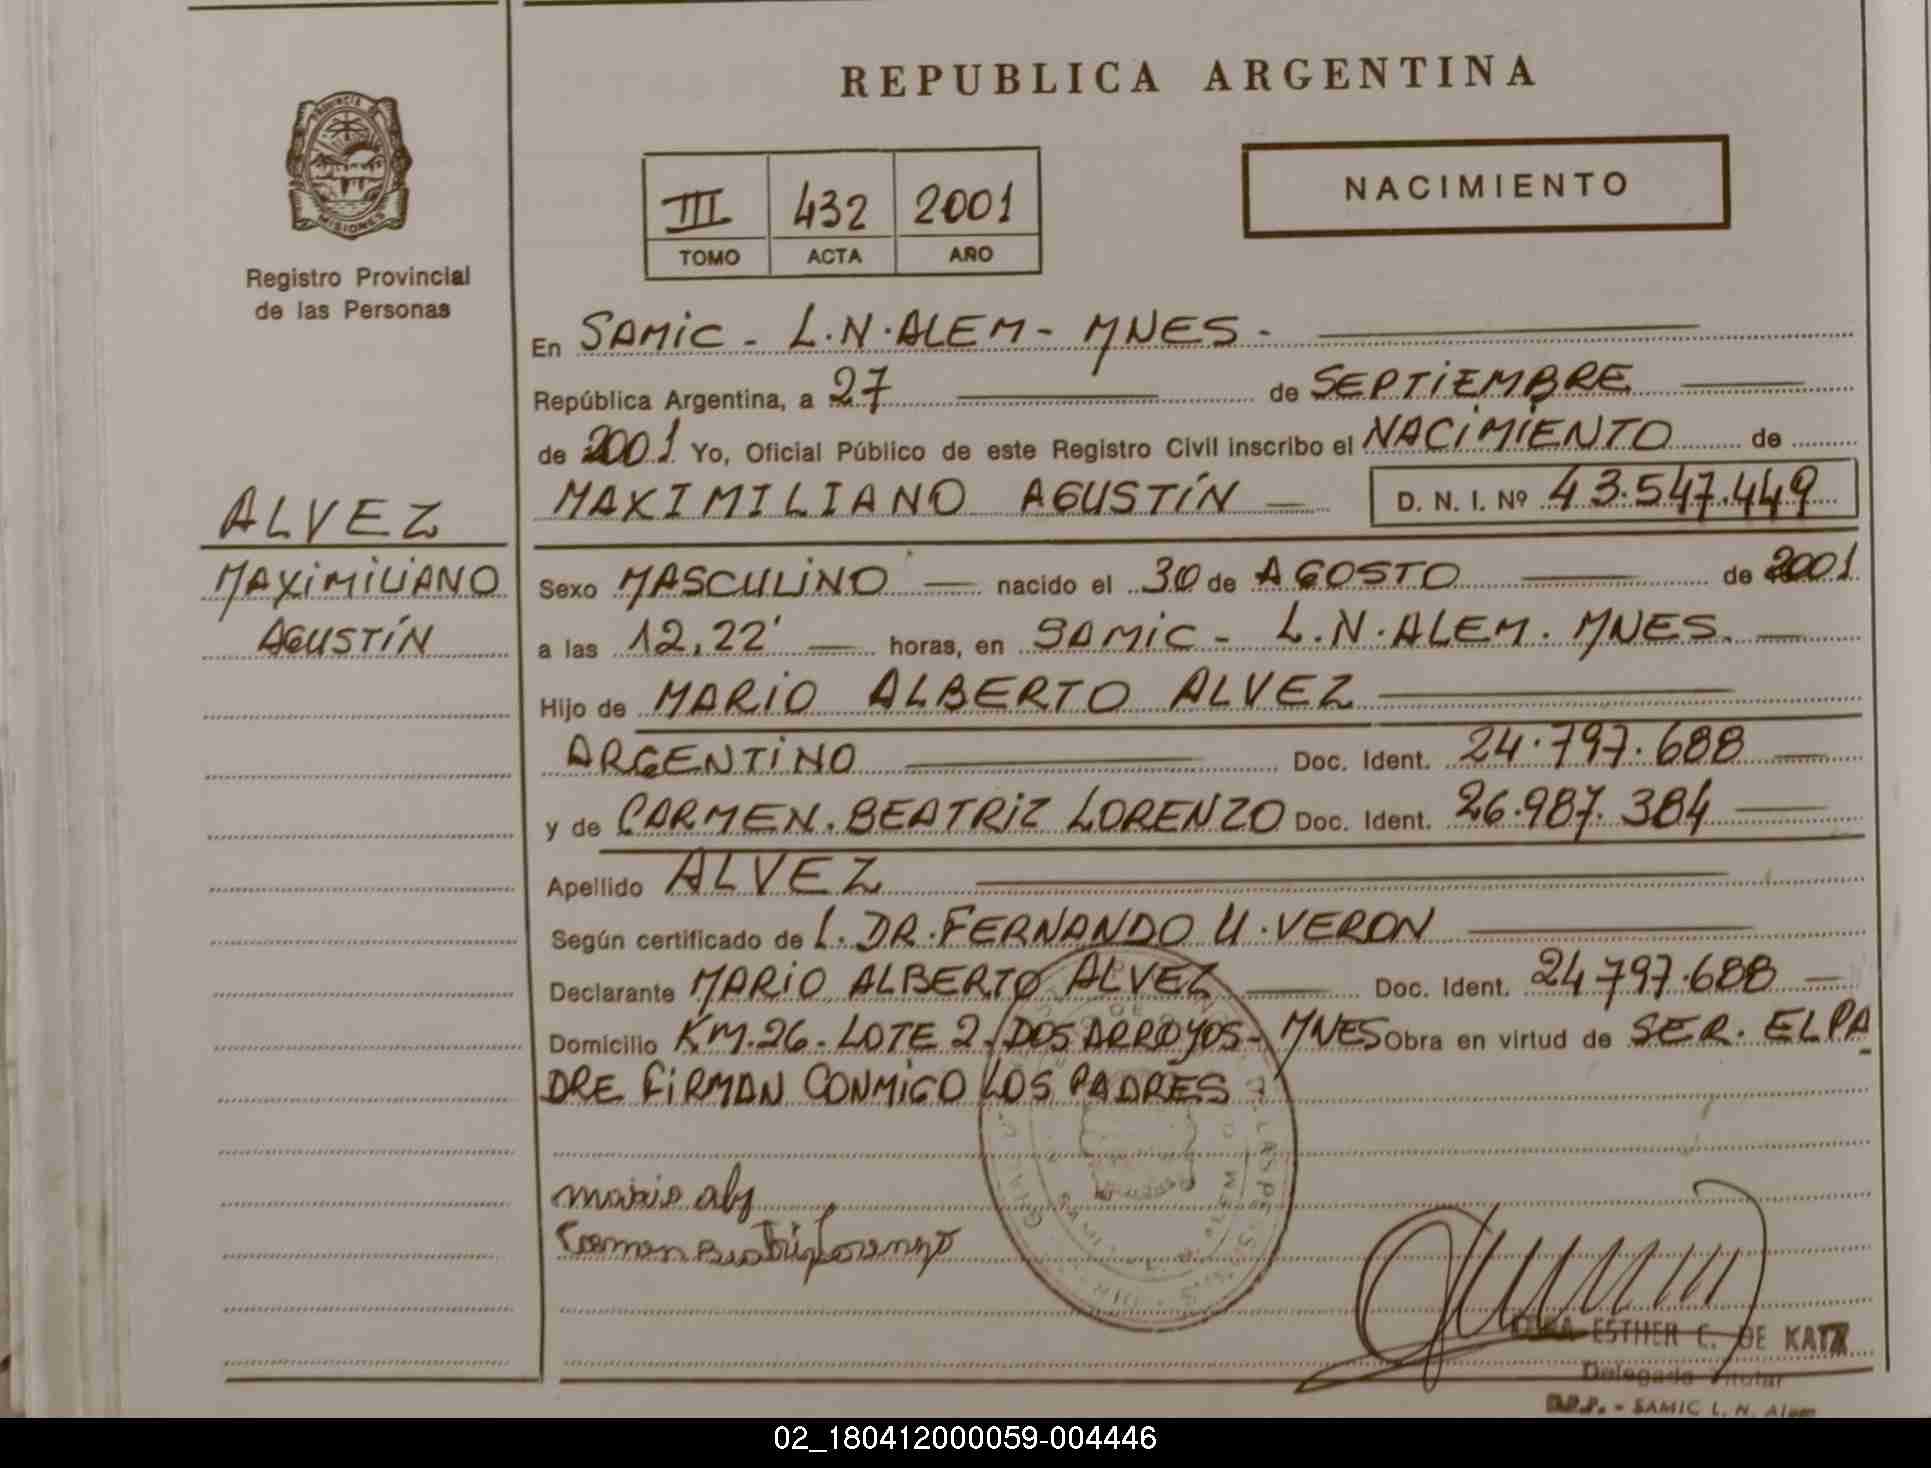 REPUBLICA ARGENTINA
PROVINCIA DE MISIONES
Registro Provincial
de las Personas
III 432 2001
TOMO ACTA AÑO
NACIMIENTO
ALVEZ
MAXIMILIANO
AGUSTÍN
En SAMIC - L.N.ALEM - MNES -
República Argentina, a 27 de SEPTIEMBRE
de 2001 Yo, Oficial Público de este Registro Civil inscribo el NACIMIENTO de
MAXIMILIANO AGUSTÍN D. N. I. Nº 43.547.449
Sexo MASCULINO nacido el 30 de AGOSTO de 2001
a las 12,22' horas, en SAMIC - L.N.ALEM. MNES.
Hijo de MARIO ALBERTO ALVEZ
ARGENTINO Doc. Ident. 24.797.688
y de CARMEN. BEATRIZ LORENZO Doc. Ident. 26.987.384
Apellido ALVEZ
Según certificado de L. DR. FERNANDO U. VERON
Declarante MARIO ALBERTO ALVEZ Doc. Ident. 24797.688
Domicilio KM.26 - LOTE 2. DOS ARROYOS - MNES Obra en virtud de SER. EL PA
DRE FIRMAN CONMIGO LOS PADRES
Carmen Beatriz Lorenzo
ESTHER C. DE KATZ
Delegada Titular
SAMIC L. N. Alem
02_180412000059-004446